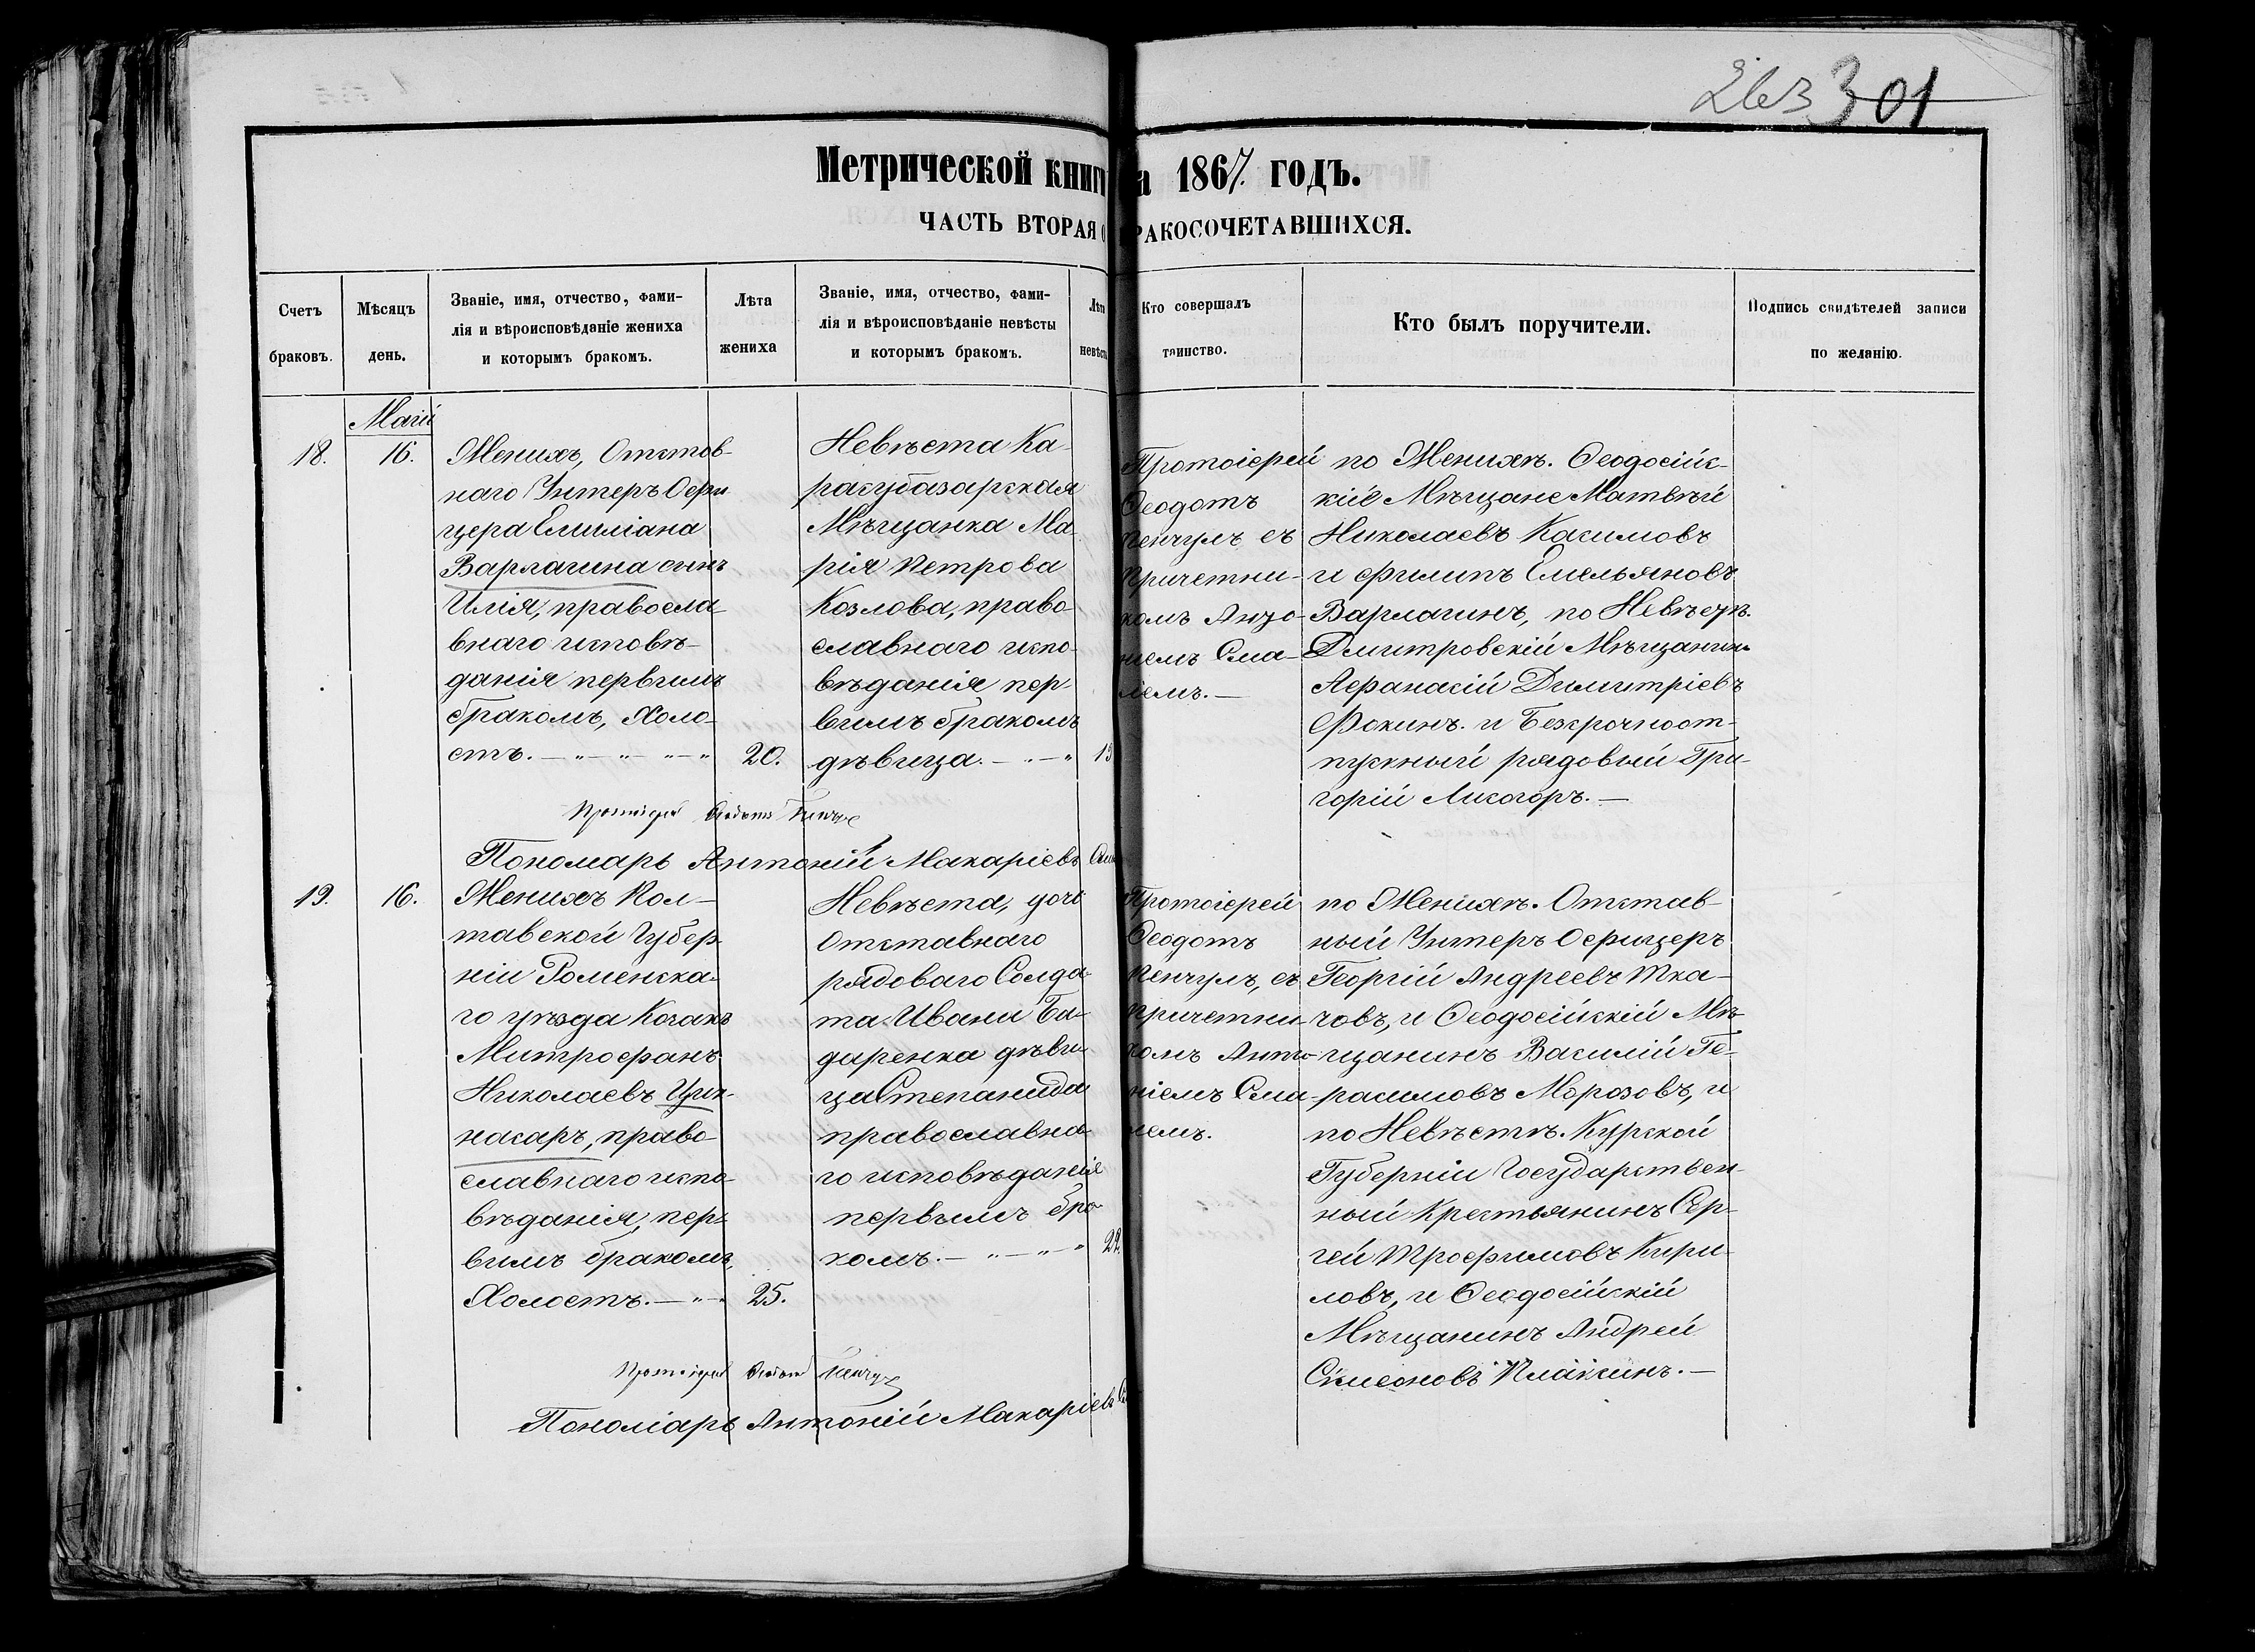 263 301
Метрической книги на 1867. годъ.
ЧАСТЬ ВТОРАЯ О БРАКОСОЧЕТАВШИХСЯ.
Счетъ браковъ.
Мѣсяцъ день.
Званіе, имя, отчество, фами-
лія и вѣроисповѣданіе жениха
и которымъ бракомъ.
Лѣта
жениха
Званіе, имя, отчество, фами-
лія и вѣроисповѣданіе невѣсты
и которымъ бракомъ.
Лѣта
невѣсты
Кто совершалъ
таинство.
Кто былъ поручители.
Подпись свидѣтелей записи
по желанію.
Маій
18.
16.
Женихъ, Отстов-
наго Унтеръ Офи
цера Емиліана
Варлагина сынъ
Илія, правосла-
внаго исповѣ-
данія первымъ
бракомъ, Холо-
стъ.
20.
Невѣста Ка-
расубазарская
Мѣщанка Ма-
рія Петрова
Козлова, право-
славнаго испо-
вѣданія пер-
вымъ бракомъ
дѣвица.
19
Протоіерей
Ѳеодотъ
Пенчулъ съ
Причетни-
комъ Анто-
ніемъ Сма-
ліемъ.
по Женихѣ. Ѳеодосійс-
кіе Мѣщане Матвѣй
Николаевъ Касимовъ
и Филипъ Емельяновъ
Варлагинъ, по Невѣстѣ.
Дмитровскій Мѣщанинъ
Афанасій Димитріевъ
Фокинъ. и Безсрочноот-
пускный рядовый Гри-
горій Лисогоръ.
Протоіерей Ѳеодотъ Пенчулъ
Пономарь Антоній Макаріевъ
19.
16.
Женихъ Пол-
тавской Губер-
ніи Роменска-
го уѣзда Козакъ
Митрофанъ
Николаевъ Цис-
насаръ, право-
славнаго испо-
вѣданія, пер-
вымъ бракомъ,
Холостъ.
25.
Невѣста, дочь
Отставнаго
рядоваго Солда-
та Ивана Ба-
даренка дѣви-
ца Степанида
православна-
го исповѣданія
первымъ бра-
комъ.
22.
Протоіерей
Ѳеодотъ
Пенчулъ, съ
Причетни-
комъ Анто-
ніемъ Сма-
лемъ.
по Женихѣ. Отстав-
ный Унтеръ Офицеръ
Георгій Андреевъ Тка-
човъ, и Ѳеодосійскій Мѣ-
щанинъ Василій Ге-
расимовъ Морозовъ, и
по Невѣстѣ. Курской
Губерніи Государствен-
ный Крестьянинъ Сер-
гей Трофимовъ Кири-
ловъ, и Ѳеодосійскій
Мѣщанинъ Андрей
Симеоновъ Плаксинъ.
Протоіерей Ѳеодотъ Пенчулъ
Пономарь Антоній Макаріевъ